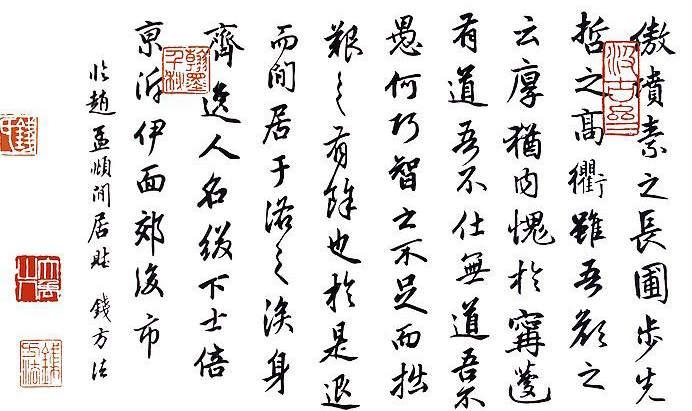 傲墳素之長圃步先
哲之髙衢雖吾顏之
云厚猶内愧於寗蘧
有道吾不仕無道吾不
愚何巧智之不足而拙
艱之有餘也於是退
而閒居于洛之涘身
齊逸人名綴下士偣
京泝伊面郊後市
臨趙孟頫閒居 錢方法
汲古
翰墨千
錢